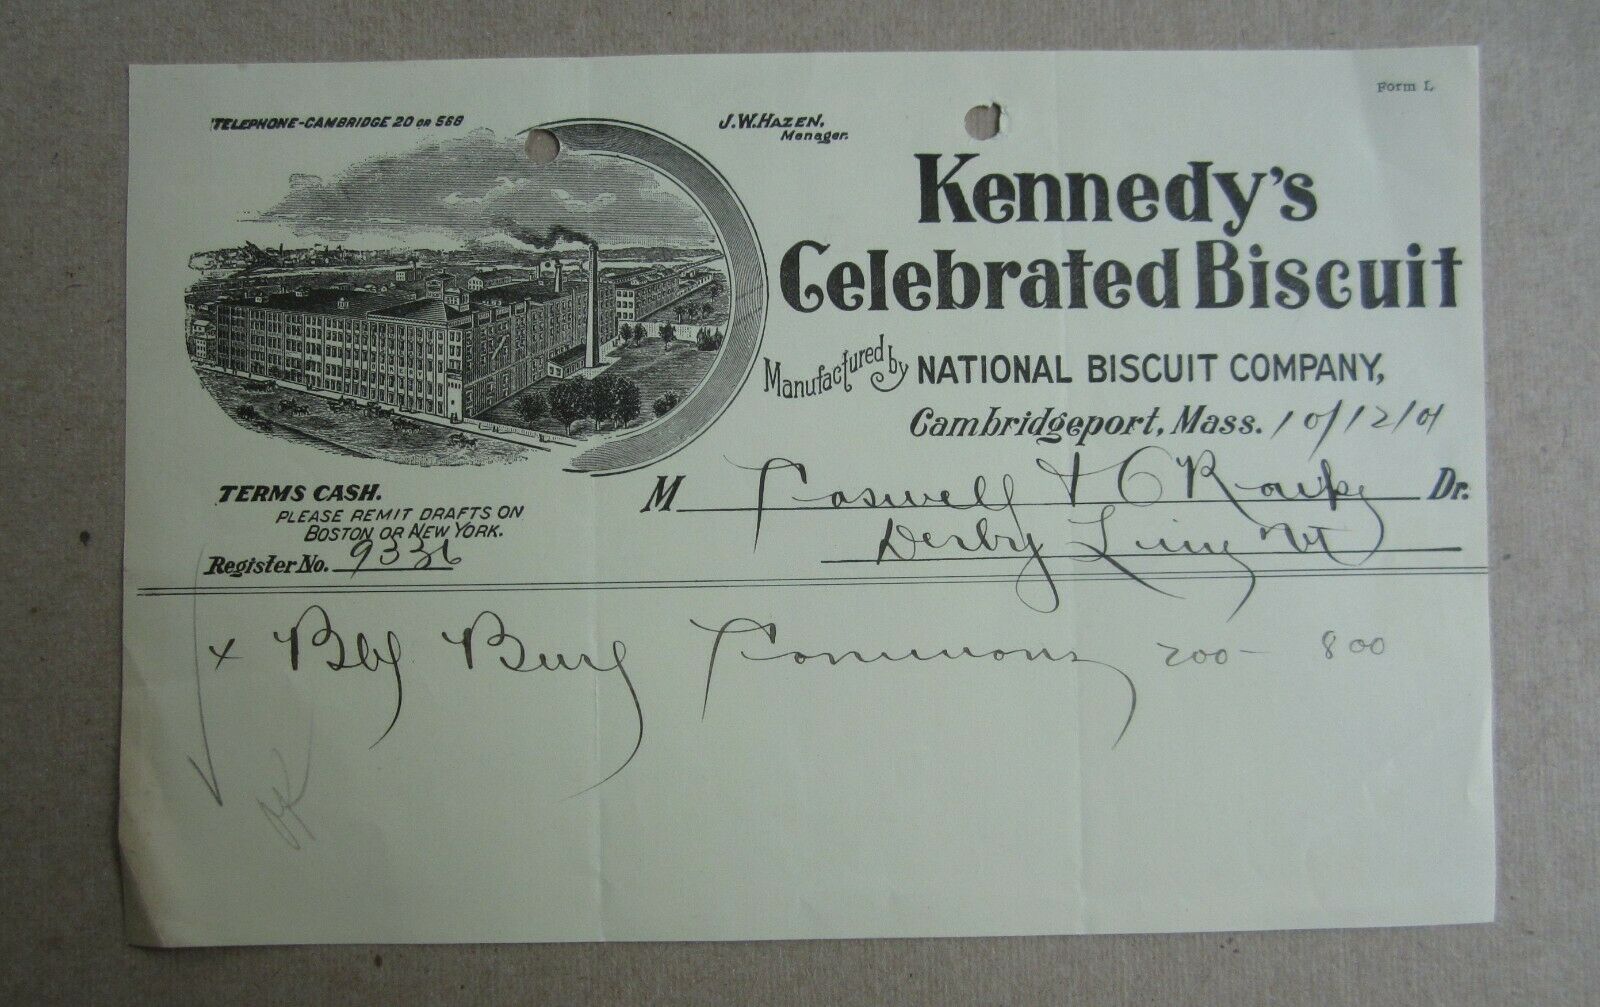 Form L
TELEPHONE-CAMBRIDGE 20 OR 568
J.W. HAZEN,
Manager.
Kennedy's
Celebrated Biscuit
Manufactured by NATIONAL BISCUIT COMPANY,
Cambridgeport, Mass. 10/12/01
TERMS CASH.
PLEASE REMIT DRAFTS ON
BOSTON OR NEW YORK.
M Caswell & Dr.
Derby Line Vt
Register No. 9336
x Bbl Commons 200 - 800
OK